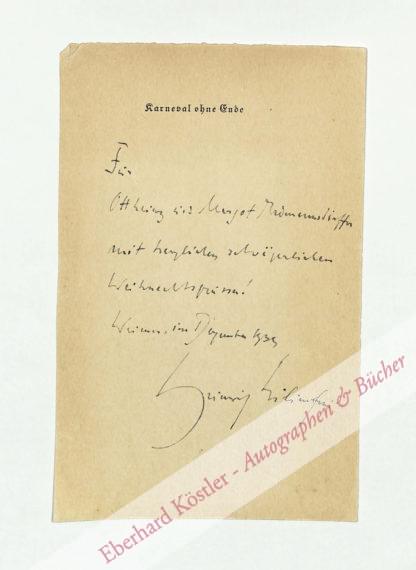 Karneval ohne Ende
Für
Ottheinz und Margot
mit herzlichen schwägerlichen
Weihnachtsgrüssen!
Weimar, im Dezember 1939
Heinrich
Eberhard Köstler - Autographen & Bücher